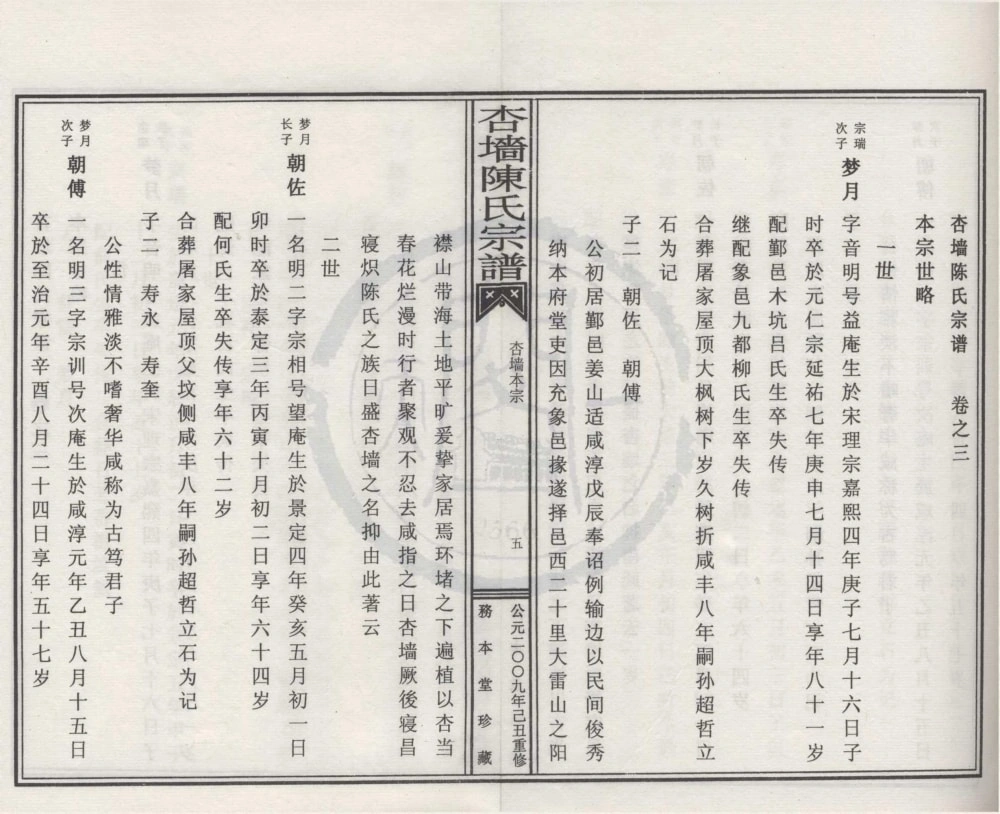 杏墙陈氏宗谱 卷之三
本宗世略
一世
宗瑞次子 梦月 字音明号益庵生於宋理宗嘉熙四年庚子七月十六日子
时卒於元仁宗延祐七年庚申七月十四日享年八十一岁
配鄞邑木坑吕氏生卒失传
继配象邑九都柳氏生卒失传
合葬屠家屋顶大枫树下岁久树折咸丰八年嗣孙超哲立
石为记
子二 朝佐 朝傅
公初居鄞邑姜山适咸淳戊辰奉诏例输边以民间俊秀
纳本府堂吏因充象邑掾遂择邑西二十里大雷山之阳
杏墙陳氏宗譜
杏墙本宗
五
公元二〇〇九年己丑重修
務本堂珍藏
襟山带海土地平旷爰挚家居焉环堵之下遍植以杏当
春花烂漫时行者聚观不忍去咸指之日杏墙厥後寝昌
寝炽陈氏之族日盛杏墙之名抑由此著云
二世
梦月长子 朝佐 一名明二字宗相号望庵生於景定四年癸亥五月初一日
卯时卒於泰定三年丙寅十月初二日享年六十四岁
配何氏生卒失传享年六十二岁
合葬屠家屋顶父坟侧咸丰八年嗣孙超哲立石为记
子二 寿永 寿奎
公性情雅淡不嗜奢华咸称为古笃君子
梦月次子 朝傅 一名明三字宗训号次庵生於咸淳元年乙丑八月十五日
卒於至治元年辛酉八月二十四日享年五十七岁
1566